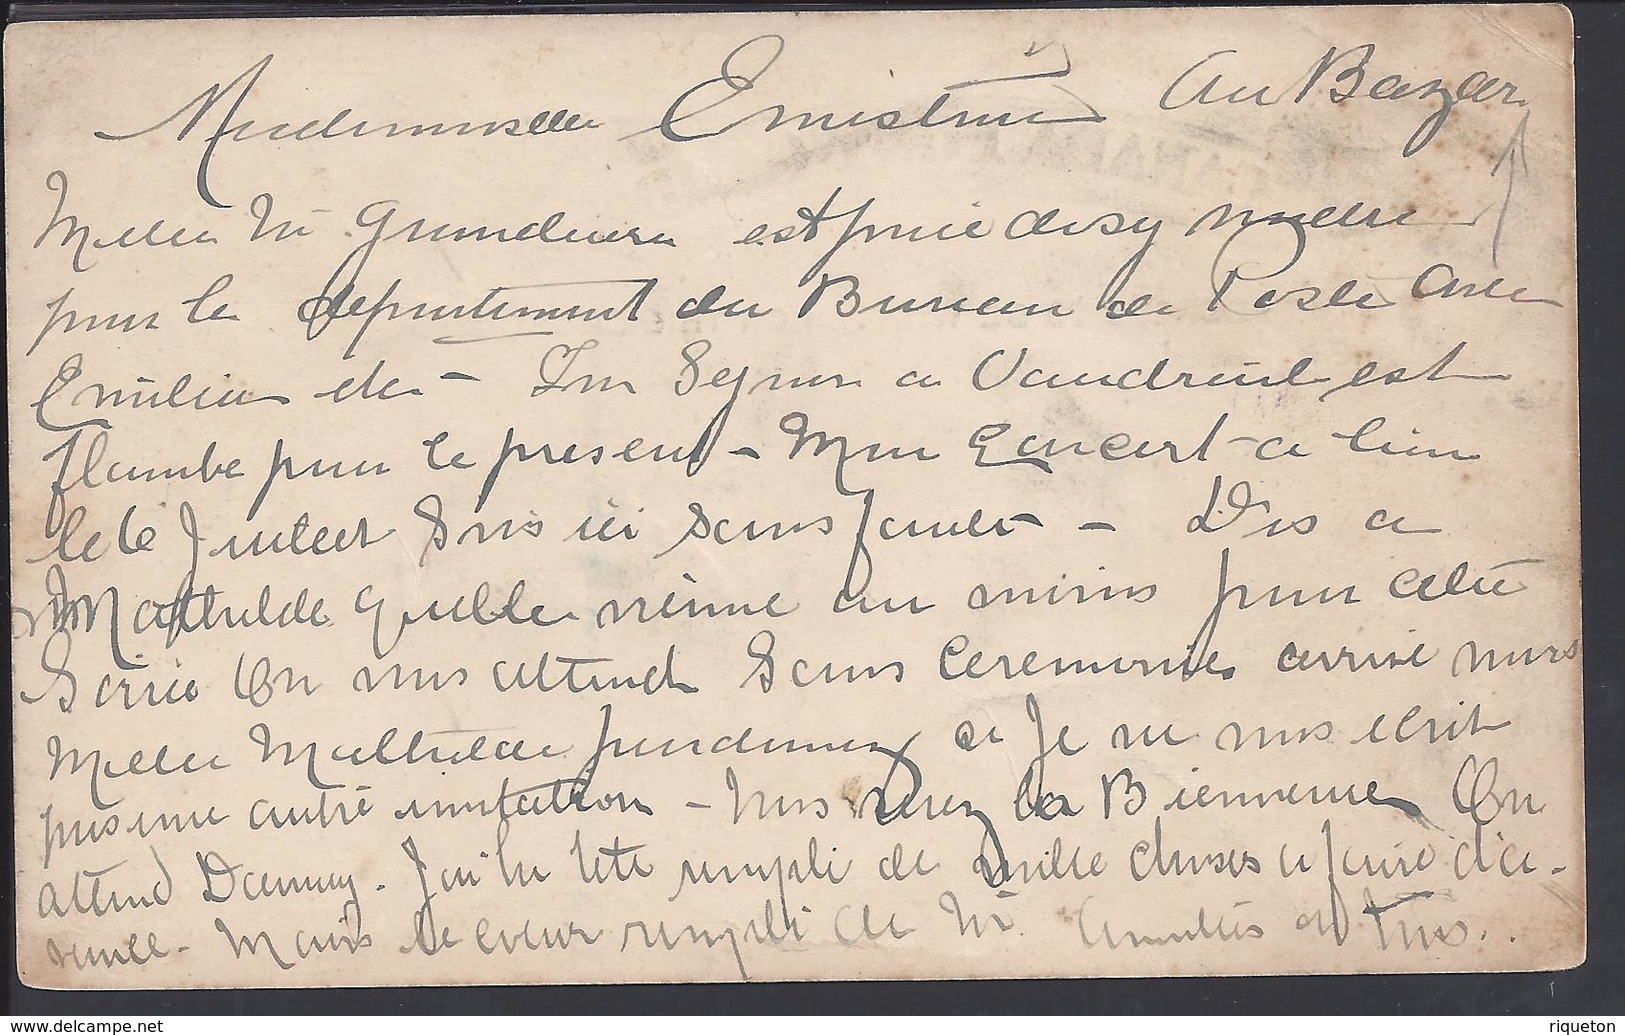 Mademoiselle Ernestine Au Bazar
Melle M Grandmere est priée de s'y rendre
pour le département du Bureau de Poste avec
Emilien etc - Son Sejour a Vaudreuil est
flambé pour le present - Mon Concert a lieu
le 6 Juillet Sois ici sans faute - Dis a
Mathilde quelle vienne au moins pour cette
Soirée On vous attend Sans Ceremonies arrive
Melle Mathilde si Je ne vous ecrit
pas une autre invitation - Vous serez la Bienvenue On
attend Dannay. J'ai la tete rempli de mille choses a faire d'a-
vance - Mais le coeur rempli de Amitiés a Tous..
www.delcampe.net
riqueton